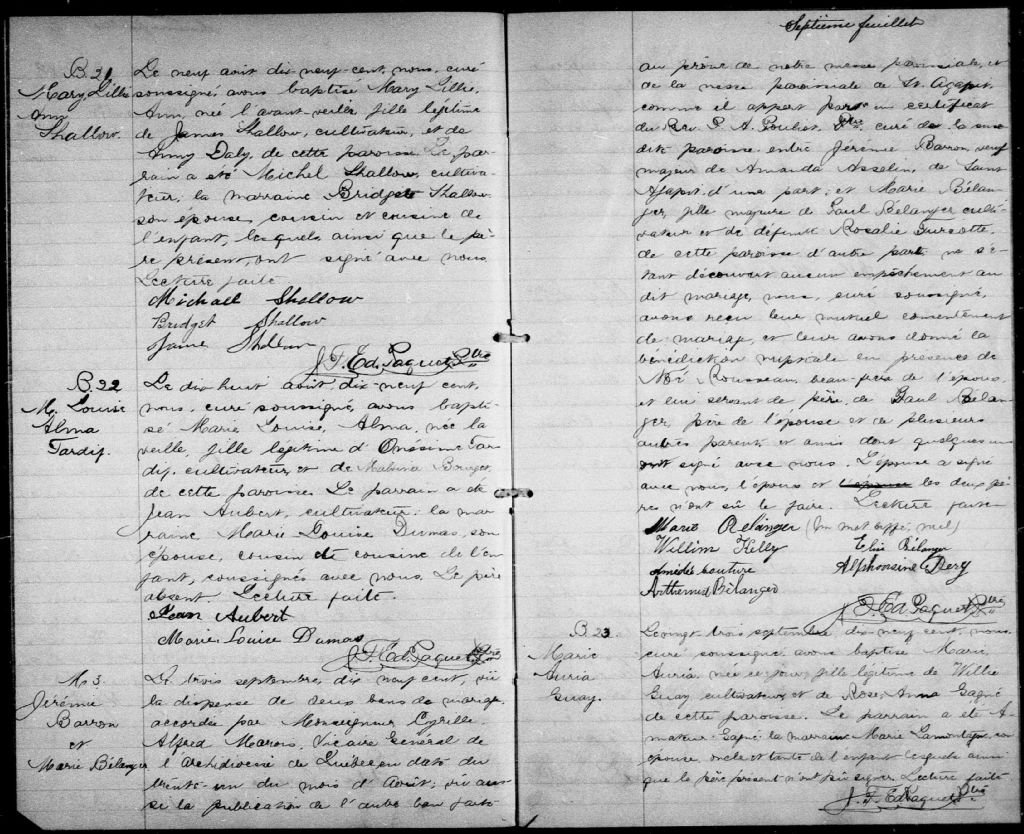 B. 21
Mary Lillie
Ann
Shallow.
Le neuf août dix-neuf-cent, nous, curé
soussigné avons baptisé Mary Lillie,
Ann, née l'avant-veille, fille légitime
de James Shallow, cultivateur, et de
Anny Daly, de cette paroisse. Le par-
rain a été Michel Shallow, cultiva-
teur, la marraine Bridget Shallow,
son épouse, cousin et cousine de
l'enfant, lesquels ainsi que le pè-
re présent, ont signé avec nous.
Lecture faite
Michall Shallow
Bridget Shallow
Jame Shallow
J. F. Ed. Paquet, Ptre
B. 22
M. Louise
Alma
Tardif.
Le dix huit août, dix-neuf cent,
nous, curé soussigné, avons bapti-
sé Marie Louise, Alma, née la
veille, fille légitime d'Onésime Tar-
dif, cultivateur, et de Malvina Bourget
de cette paroisse. Le parrain a été
Jean Aubert, cultivateur; la mar-
raine Marie Louise Dumas, son
épouse, cousin et cousine de l'en-
fant, soussignés avec nous. Le père
absent. Lecture faite.
Jean Aubert
Marie Louise Dumas
J. F. Ed. Paquet, Ptre
M 3.
Jérémie
Barron
et
Marie Bélanger
Le trois septembre, dix neuf cent, vu
la dispense de deux bans de mariage,
accordée par Monseigneur Cyrille
Alfred Marois, Vicaire Général de
l'Archidiocèse de Québec en date du
trente-un du mois d'Août; vu aus-
si la publication de l'autre ban faite
Septième feuillet
au prône de notre messe paroissiale, et
de la messe paroissiale de St. Agapit,
comme il appert par un certificat
du Rev. P. A. Pouliot, Ptre, curé de la sus-
dite paroisse entre Jérémie Barron, veuf
majeur de Amanda Asselin, de Saint
Agapit, d'une part; et Marie Bélan-
ger, fille majeure de Paul Bélanger culti-
vateur et de défunte Rosalie Turcotte,
de cette paroisse d'autre part; ne s'é-
tant découvert aucun empêchement au
dit mariage, nous, curé soussigné,
avons reçu leur mutuel consentement
de mariage, et leur avons donné la
bénédiction nuptiale en présence de
Noé Rousseau, beau-père de l'époux,
et lui servant de père, de Paul Bélan-
ger, père de l'épouse et de plusieurs
autres parents et amis dont quelques uns
ont signé avec nous. L'épouse a signé
avec nous, l'époux et l'épouse les deux pè-
res n'ont su le faire. Lecture faite
Marie Belanger (Un mot biffé, nul)
Willim Kelly Elise Bélanger
Amédée Couture Alphonsine Dery
Arthemus Bélanger
J. F. Ed Paquet Ptre
B. 23
Marie
Auria
Guay.
Le vingt trois septembre, dix neuf cent, nous,
curé soussigné avons baptisé Marie,
Auria, née ce jour, fille légitime de Willie
Guay, cultivateur, et de Rose-Anna Gagné
de cette paroisse. Le parrain a été A-
mateur Gagné, la marraine Marie Lamontagne, son
épouse, oncle et tante de l'enfant lesquels ainsi
que le père présent n'ont pu signer. Lecture faite
J. F. Ed Paquet Ptre